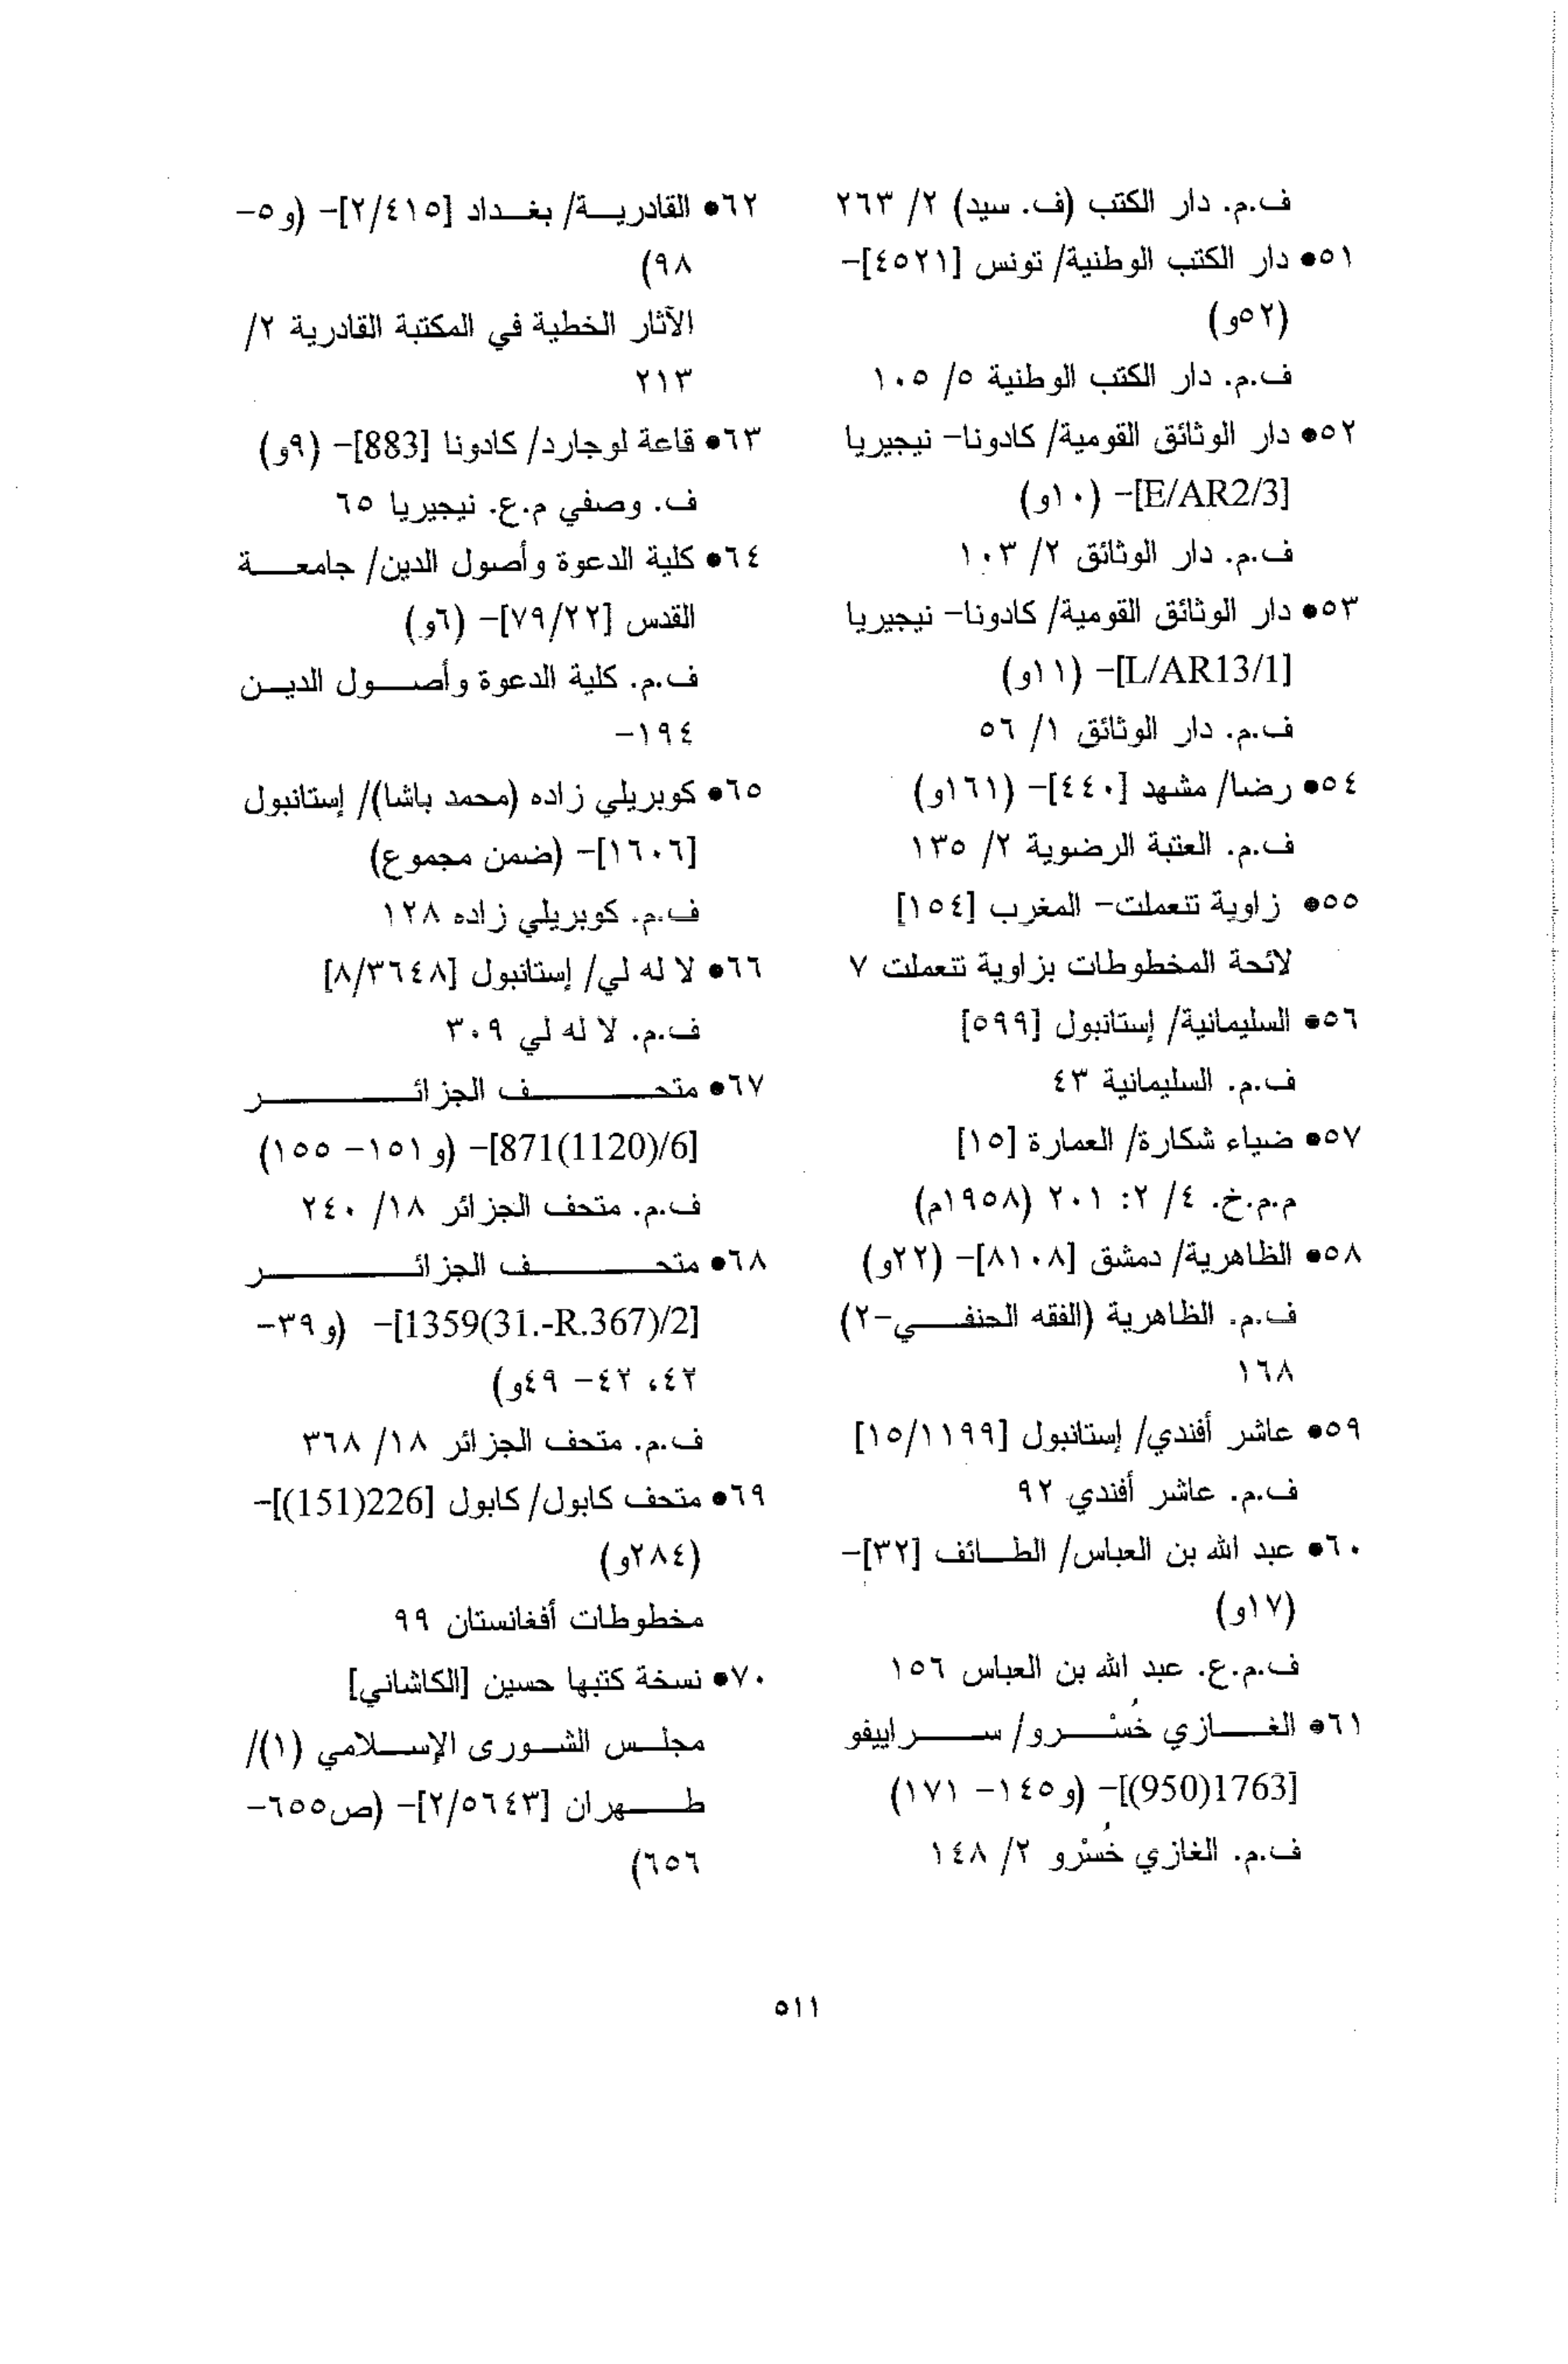 ف.م. دار الكتب (ف. سيد) ٢/ ٢٦٣
٥١• دار الكتب الوطنية/ تونس [٤٥٢١]-
(٥٢و)
ف.م. دار الكتب الوطنية ٥/ ١٠٥
٥٢• دار الوثائق القومية/ كادونا- نيجيريا
[E/AR2/3]- (١٠و)
ف.م. دار الوثائق ٢/ ١٠٣
٥٣• دار الوثائق القومية/ كادونا- نيجيريا
[L/AR13/1]- (١١و)
ف.م. دار الوثائق ١/ ٥٦
٥٤• رضا/ مشهد [٤٤٠]- (١٦١و)
ف.م. العتبة الرضوية ٢/ ١٣٥
٥٥• زاوية تنعملت- المغرب [١٥٤]
لائحة المخطوطات بزاوية تنعملت ٧
٥٦• السليمانية/ إستانبول [٥٩٩]
ف.م. السليمانية ٤٣
٥٧• ضياء شكارة/ العمارة [١٥]
م.م.خ. ٤/ ٢: ٢٠١ (١٩٥٨م)
٥٨• الظاهرية/ دمشق [٨١٠٨]- (٢٢و)
ف.م. الظاهرية (الفقه الحنفي-٢)
١٦٨
٥٩• عاشر أفندي/ إستانبول [١٥/١١٩٩]
ف.م. عاشر أفندي ٩٢
٦٠• عبد الله بن العباس/ الطائف [٣٢]-
(١٧و)
ف.م.ع. عبد الله بن العباس ١٥٦
٦١• الغازي خُسْرو/ سراييفو
[1763(950)]- (و١٤٥- ١٧١)
ف.م. الغازي خُسْرو ٢/ ١٤٨
٦٢• القادرية/ بغداد [٢/٤١٥]- (و٥-
٩٨)
الآثار الخطية في المكتبة القادرية ٢/
٢١٣
٦٣• قاعة لوجارد/ كادونا [883]- (٩و)
ف. وصفي م.ع. نيجيريا ٦٥
٦٤• كلية الدعوة وأصول الدين/ جامعة
القدس [٧٩/٢٢]- (٦و)
ف.م. كلية الدعوة وأصول الدين
١٩٤-
٦٥• كوبريلي زاده (محمد باشا)/ إستانبول
[١٦٠٦]- (ضمن مجموع)
ف.م. كوبريلي زاده ١٢٨
٦٦• لا له لي/ إستانبول [٨/٣٦٤٨]
ف.م. لا له لي ٣٠٩
٦٧• متحف الجزائر
[871(1120)/6]- (و١٥١- ١٥٥)
ف.م. متحف الجزائر ١٨/ ٢٤٠
٦٨• متحف الجزائر
[1359(31.-R.367)/2]- (و٣٩-
٤٢، ٤٢- ٤٩و)
ف.م. متحف الجزائر ١٨/ ٣٦٨
٦٩• متحف كابول/ كابول [226(151)]-
(٢٨٤و)
مخطوطات أفغانستان ٩٩
٧٠• نسخة كتبها حسين [الكاشاني]
مجلس الشورى الإسلامي (١)/
طهران [٢/٥٦٤٣]- (ص٦٥٥-
٦٥٦)
٥١١